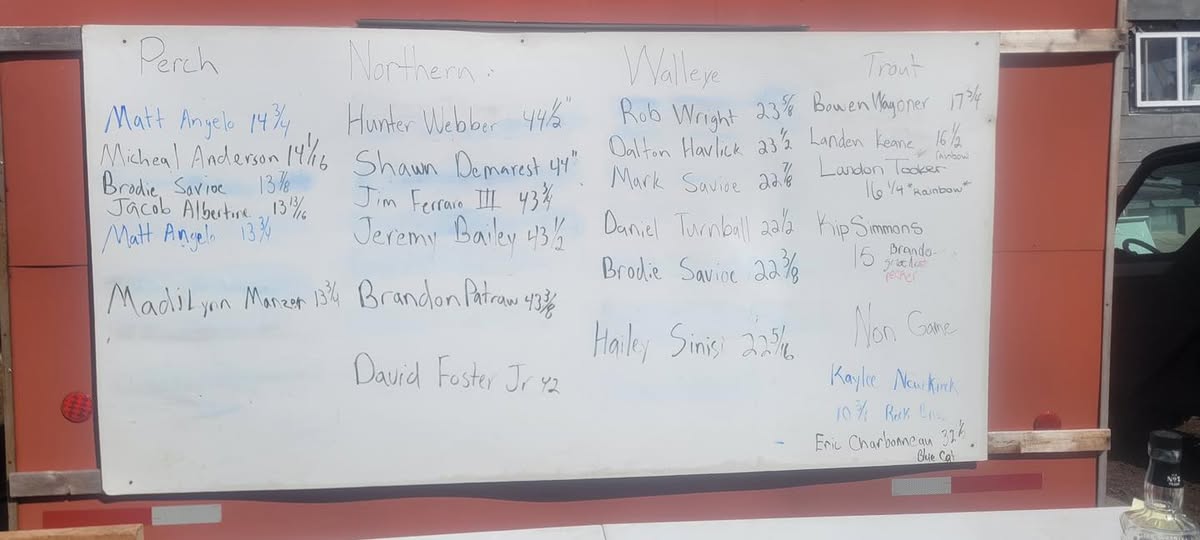 Perch
Matt Angelo 14 3/4
Micheal Anderson 14 1/16
Brodie Savioe 13 7/8
Jacob Albertine 13 13/16
Matt Angelo 13 3/4
MadiLynn Manzer 13 3/4
Northern
Hunter Webber 44 1/2"
Shawn Demarest 44"
Jim Ferraro III 43 3/4
Jeremy Bailey 43 1/2
Brandon Patraw 43 3/8
David Foster Jr 42
Walleye
Rob Wright 23 5/8
Dalton Havlick 23 1/2
Mark Savioe 22 7/8
Daniel Turnball 22 1/2
Brodie Savioe 22 3/8
Hailey Sinisi 22 5/16
Trout
Bowen Wagoner 17 3/4
Landen Keane 16 1/2
rainbow
Landon Tooker
16 1/4 "Rainbow"
Kip Simmons
15 Brando
Non Game
Kaylee Newkirk
10 3/4 Rock
Eric Charbonneau 32
Blue Cat